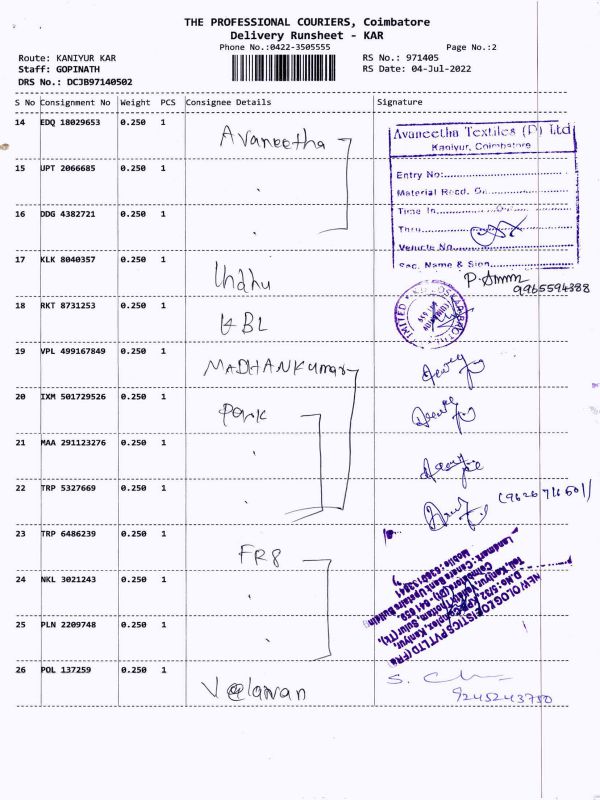 THE PROFESSIONAL COURIERS, Coimbatore
Delivery Runsheet - KAR
Phone No.:0422-3505555 Page No.:2
Route: KANIYUR KAR RS No.: 971405
Staff: GOPINATH RS Date: 04-Jul-2022
DRS No.: DCJB97140502
S No Consignment No Weight PCS Consignee Details Signature
14 EDQ 18029653 0.250 1 Avaneetha
Avaneetha Textiles (P) Ltd
Kaniyur, Coimbatore
15 UPT 2066685 0.250 1
Entry No:
Material Recd. On
16 DDG 4382721 0.250 1
Time In
Thro
Vehicle No
Sec. Name & Sign
17 KLK 8040357 0.250 1
9965594388
18 RKT 8731253 0.250 1 KBL
19 VPL 499167849 0.250 1 MADHANKumar
20 IXM 501729526 0.250 1
21 MAA 291123276 0.250 1
22 TRP 5327669 0.250 1
(9626716601)
23 TRP 6486239 0.250 1 FR8
24 NKL 3021243 0.250 1
25 PLN 2209748 0.250 1
26 POL 137259 0.250 1 Velavan
9245243750